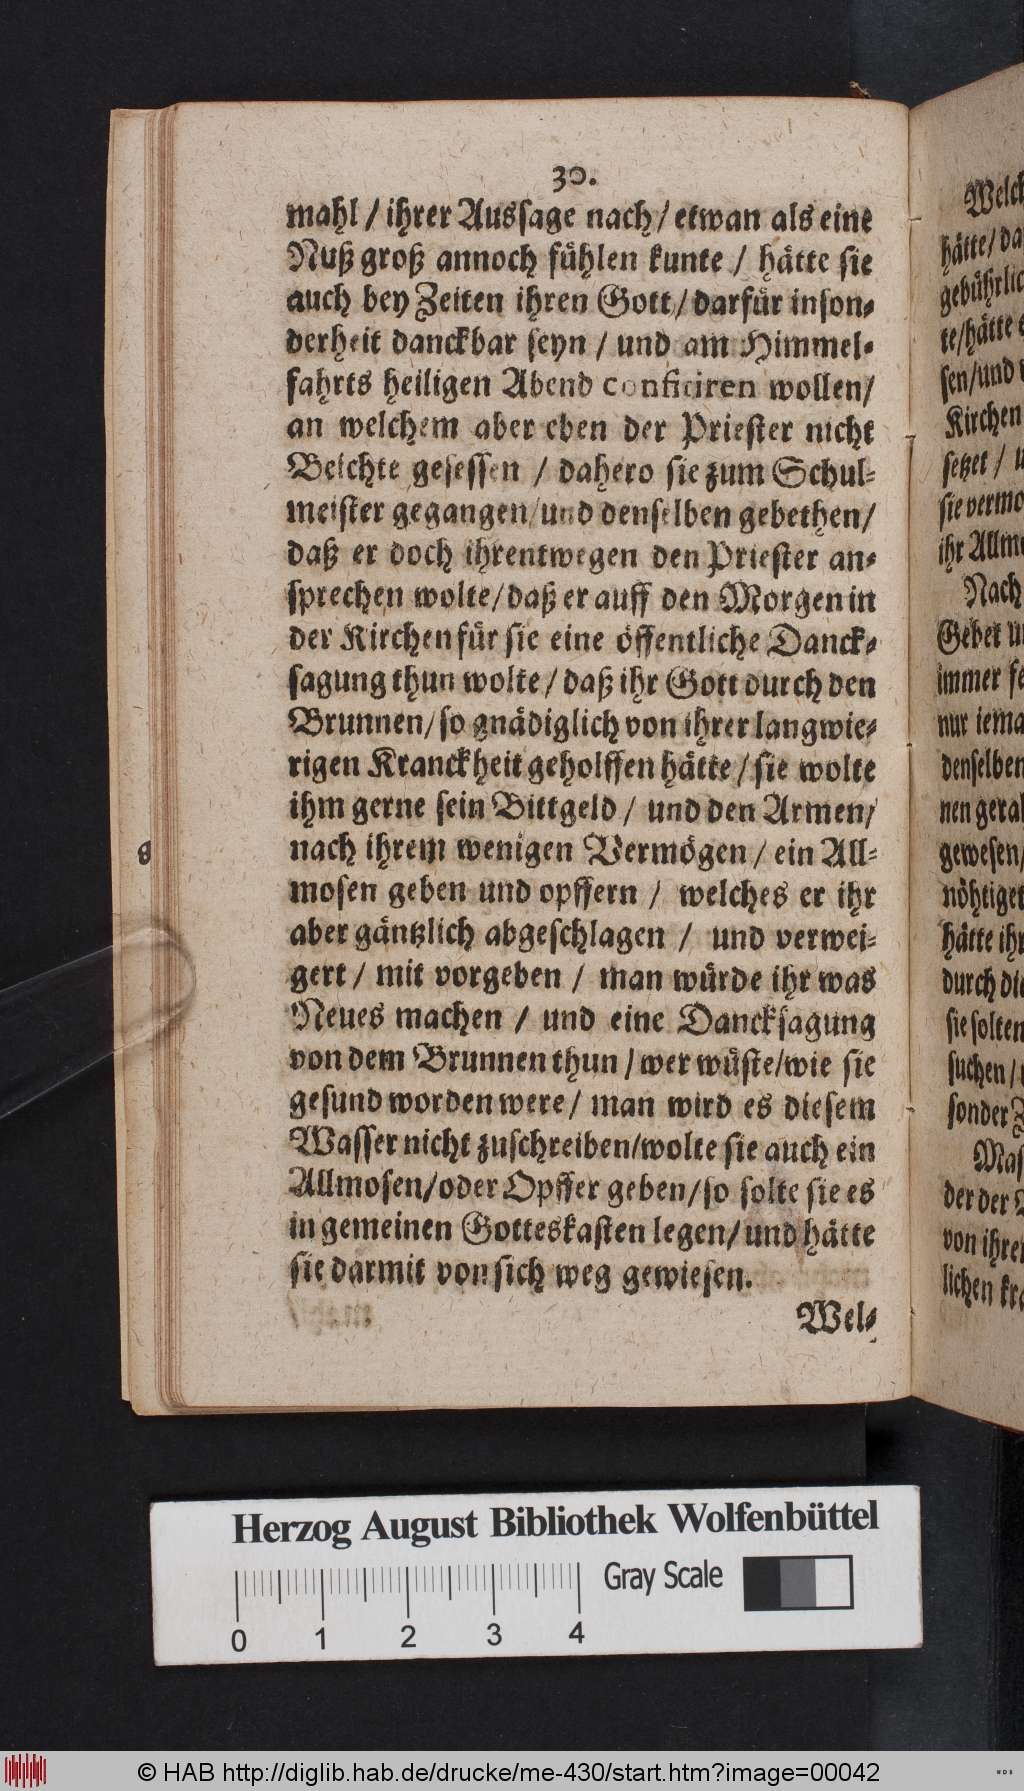 30.
mahl / ihrer Aussage nach / etwan als eine
Nuß groß annoch fühlen kunte / hätte sie
auch bey Zeiten ihren Gott / darfür inson-
derheit danckbar seyn / und am Himmel-
fahrts heiligen Abend conficiren wollen /
an welchem aber eben der Priester nicht
Beichte gesessen / dahero sie zum Schul-
meister gegangen / und denselben gebethen /
daß er doch ihrentwegen den Priester an-
sprechen wolte / daß er auff den Morgen in
der Kirchen für sie eine öffentliche Danck-
sagung thun wolte / daß ihr Gott durch den
Brunnen / so gnädiglich von ihrer langwie-
rigen Kranckheit geholffen hätte / sie wolte
ihm gerne sein Bittgeld / und den Armen /
nach ihrem wenigen Vermögen / ein All-
mosen geben und opffern / welches er ihr
aber gäntzlich abgeschlagen / und verwei-
gert / mit vorgeben / man würde ihr was
Neues machen / und eine Dancksagung
von dem Brunnen thun / wer wüste / wie sie
gesund worden were / man wird es diesem
Wasser nicht zuschreiben / wolte sie auch ein
Allmosen / oder Opffer geben / so solte sie es
in gemeinen Gotteskasten legen / und hätte
sie darmit von sich weg gewiesen.
Wel-
hätte /
te / hätte
sen / und
Kirchen
setzet /
ihr
Nach
Gebet
immer
nur
denselben
gewesen /
hätte
durch
sie solten
suchen /
sonder
der der
von
Herzog August Bibliothek Wolfenbüttel
Gray Scale
0 1 2 3 4
© HAB http://diglib.hab.de/drucke/me-430/start.htm?image=00042